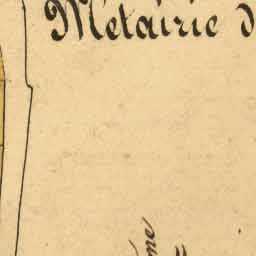 Métairie d